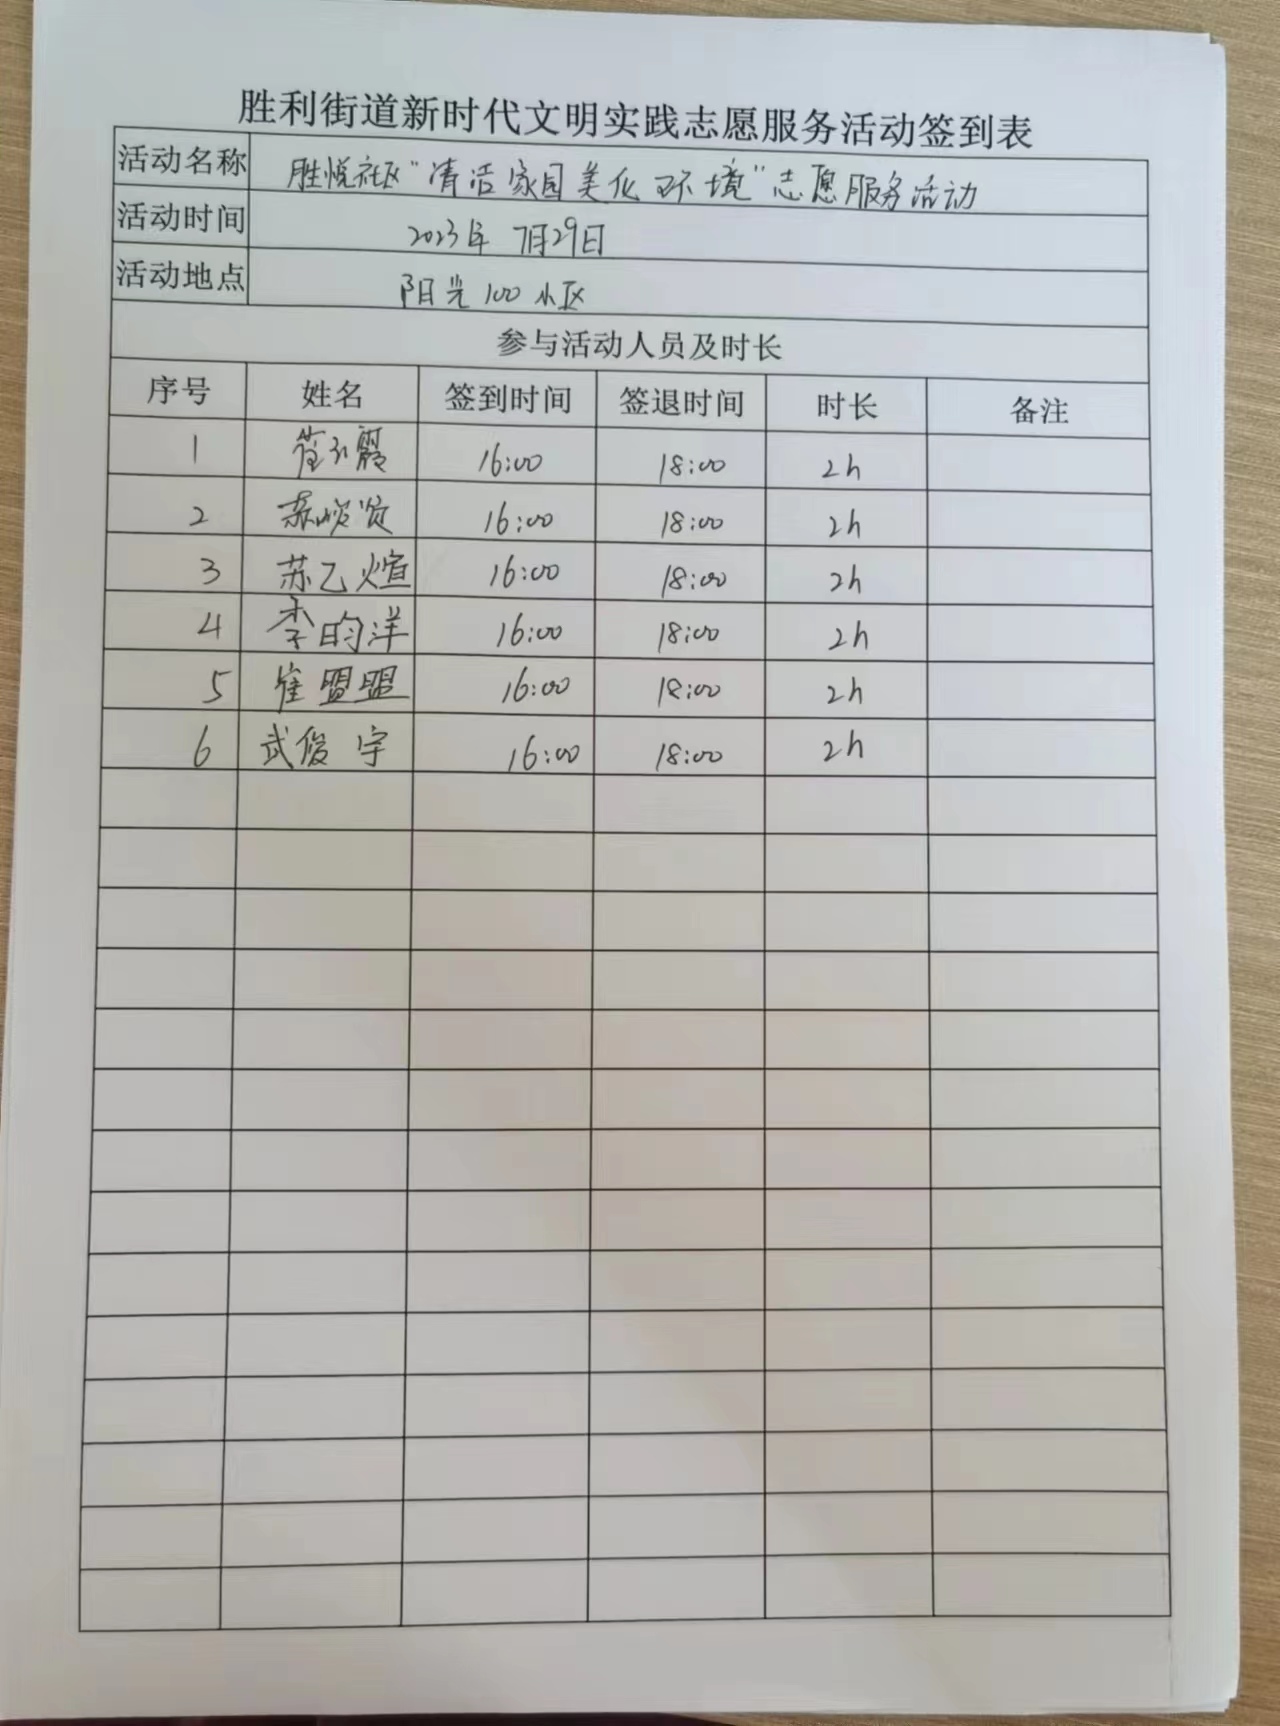 胜利街道新时代文明实践志愿服务活动签到表
活动名称 胜悦社区“清洁家园美化环境”志愿服务活动
活动时间 2023年 7月29日
活动地点 阳光100小区
参与活动人员及时长
序号 姓名 签到时间 签退时间 时长 备注
1 16:00 18:00 2h
2 苏 贤 16:00 18:00 2h
3 苏乙煊 16:00 18:00 2h
4 李昀洋 16:00 18:00 2h
5 崔盟盟 16:00 18:00 2h
6 武俊宇 16:00 18:00 2h